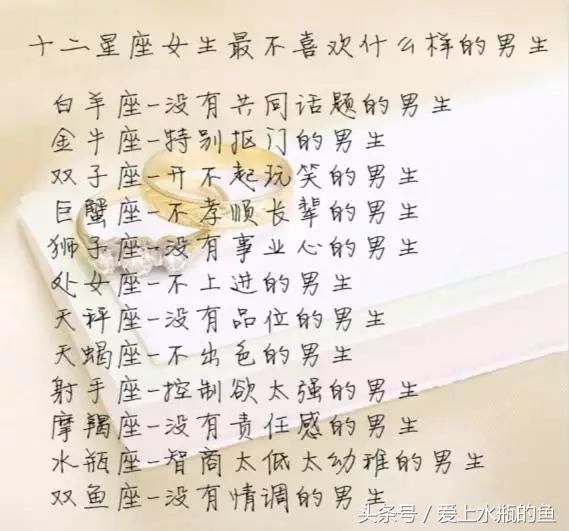 十二星座女生最不喜欢什么样的男生
白羊座-没有共同话题的男生
金牛座-特别抠门的男生
双子座-开不起玩笑的男生
巨蟹座-不孝顺长辈的男生
狮子座-没有事业心的男生
处女座-不上进的男生
天秤座-没有品位的男生
天蝎座-不出色的男生
射手座-控制欲太强的男生
摩羯座-没有责任感的男生
水瓶座-智商太低太幼稚的男生
双鱼座-没有情调的男生
头条号 / 爱上水瓶的鱼